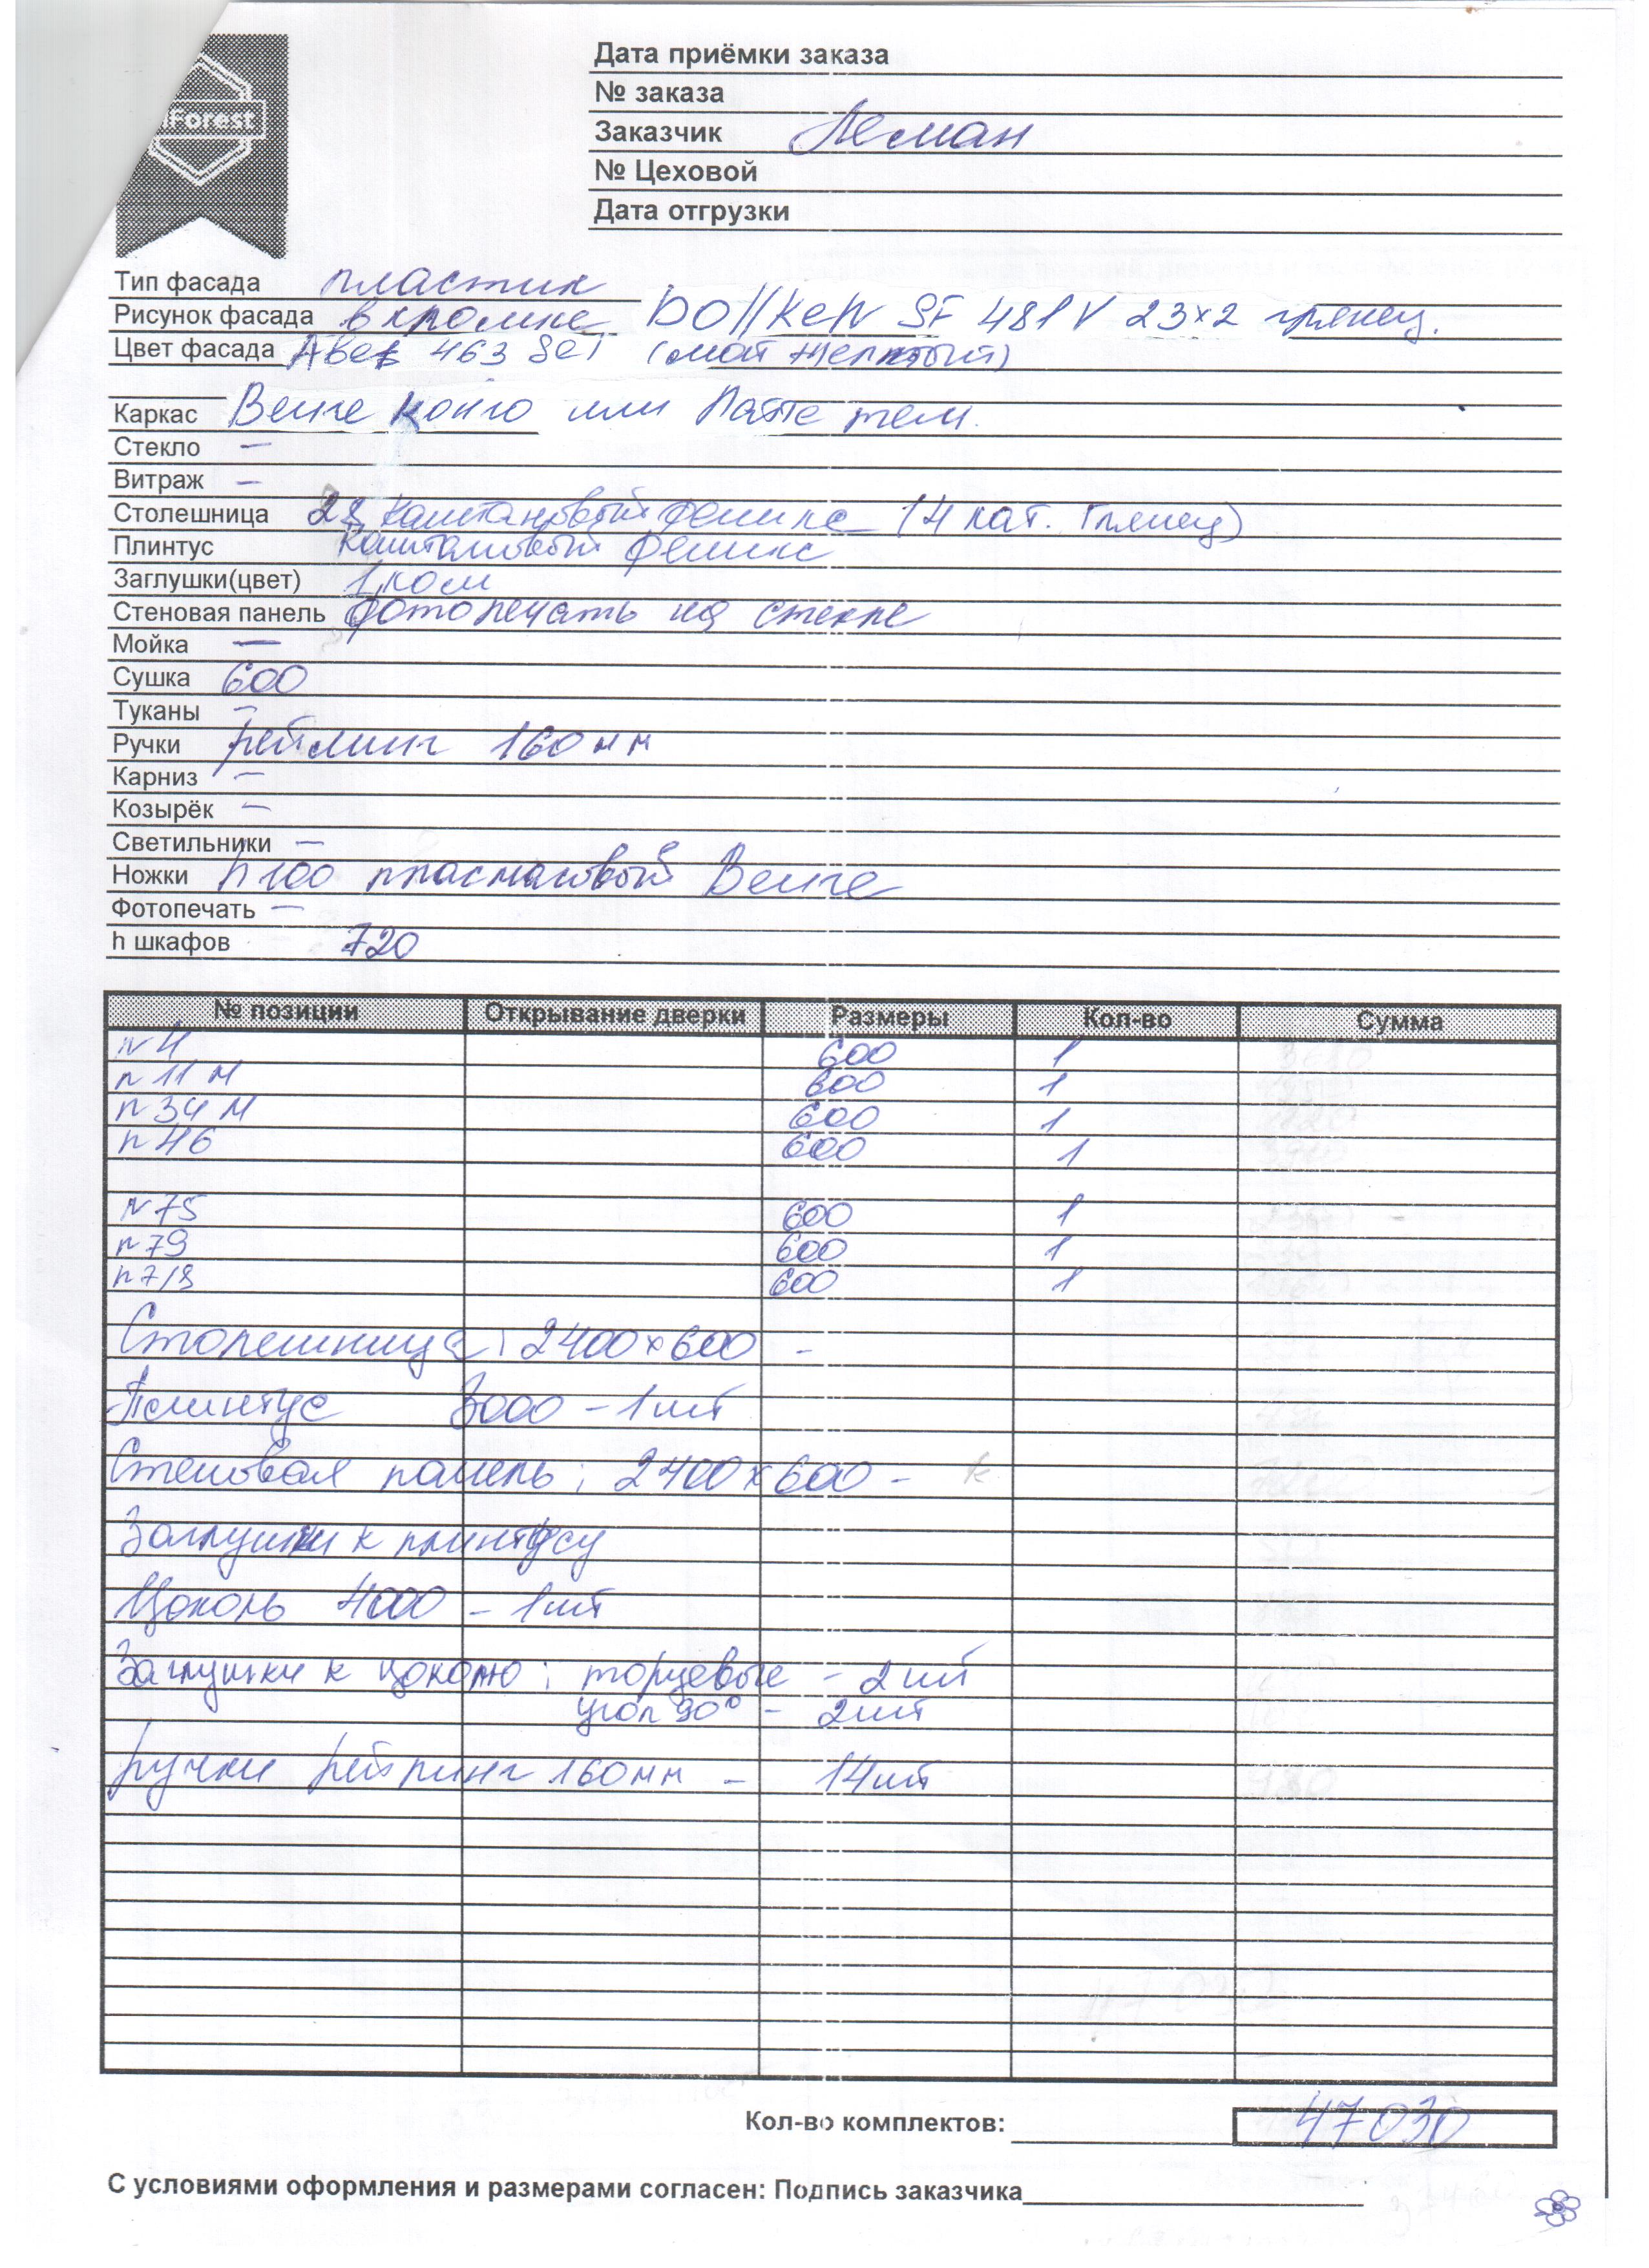 Forest
Дата приёмки заказа
№ заказа
Заказчик Леман
№ Цеховой
Дата отгрузки
Тип фасада пластик
Рисунок фасада в кромке Dollken SF 481V 23x2 глянец.
Цвет фасада Abet 463 Sei (мат желтый)
Каркас Венге Конго или Латте тем.
Стекло —
Витраж —
Столешница 28 Каштановый феникс (4 кат. Глянец)
Плинтус Каштановый феникс
Заглушки(цвет) 1 ком
Стеновая панель фотопечать на стекле
Мойка —
Сушка 600
Туканы —
Ручки рейлинг 160мм
Карниз —
Козырёк —
Светильники —
Ножки h100 пласмасовый Венге
Фотопечать —
h шкафов 720
№ позиции Открывание дверки Размеры Кол-во Сумма
п 4 600 1
п 11 М 600 1
п 34 М 600 1
п 46 600 1
п 75 600 1
п 79 600 1
п 7/8 600 1
Столешница: 2400x600 -
Плинтус 3000 - 1шт
Стеновая панель: 2400x600 -
Заглушки к плинтусу
Цоколь 4000 - 1шт
Заглушки к цоколю: торцевые - 2шт
угол 90° - 2шт
ручки рейлинг 160мм - 14шт
Кол-во комплектов: 47030
С условиями оформления и размерами согласен: Подпись заказчика